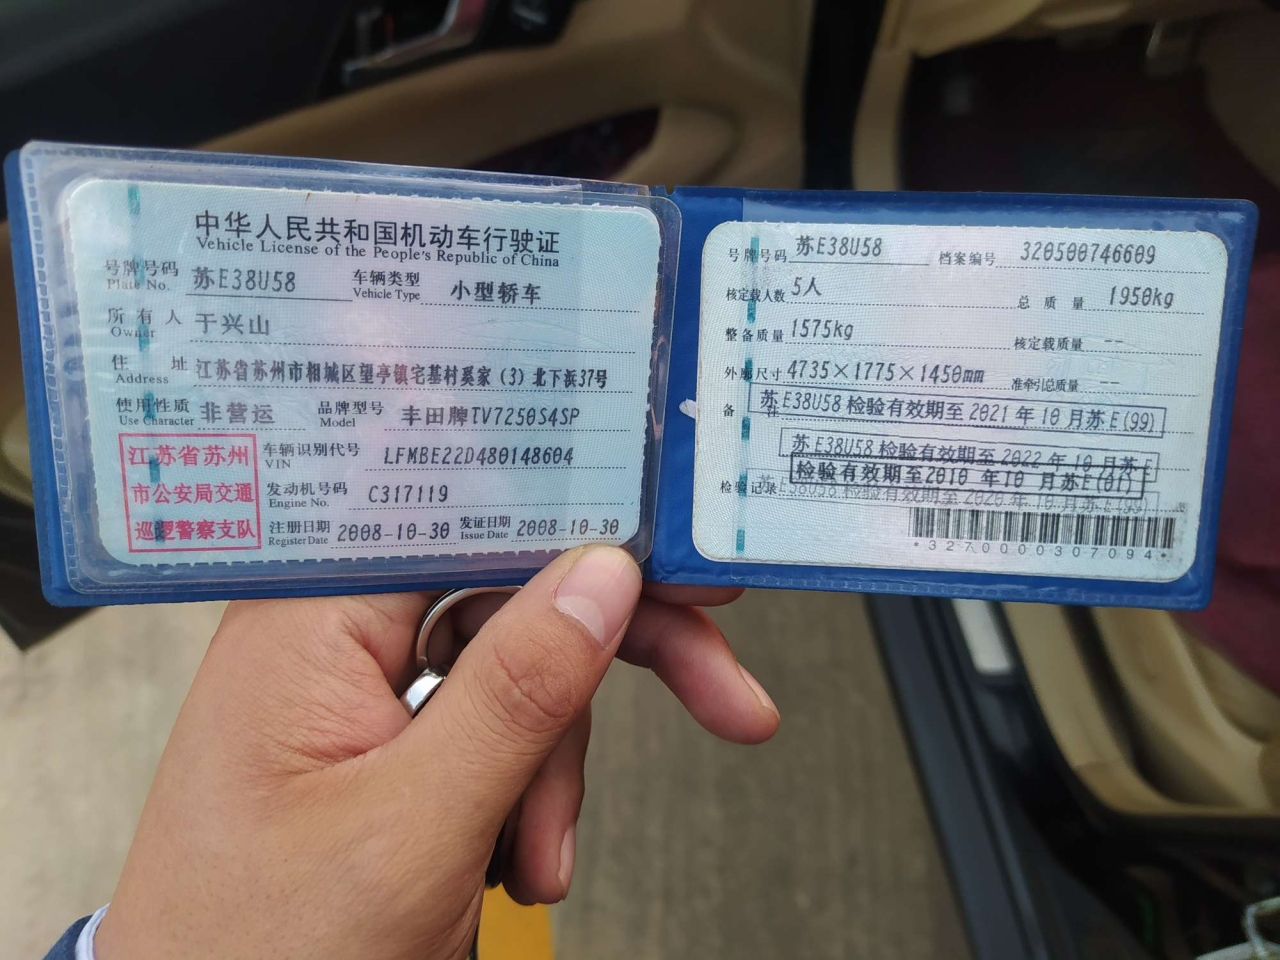 中华人民共和国机动车行驶证
Vehicle License of the People's Republic of China
号牌号码 苏E38U58 车辆类型 小型轿车
Plate No. Vehicle Type
所有人 于兴山
Owner
住址 江苏省苏州市相城区望亭镇宅基村奚家（3）北下浜37号
Address
使用性质 非营运 品牌型号 丰田牌TV7250S4SP
Use Character Model
江苏省苏州
市公安局交通
巡逻警察支队
车辆识别代号 LFMBE22D480148604
VIN
发动机号码 C317119
Engine No.
注册日期 2008-10-30 发证日期 2008-10-30
Register Date Issue Date
号牌号码 苏E38U58 档案编号 320500746609
核定载人数 5人 总质量 1950kg
整备质量 1575kg 核定载质量 --
外廓尺寸 4735×1775×1450mm 准牵引总质量 --
备注
苏E38U58检验有效期至2021年10月苏E(99)
苏E38U58检验有效期至2022年10月苏
检验有效期至2010年10月苏E(01)
检验记录 苏E38U58检验有效期至2020年10月苏E
*3270000307094*